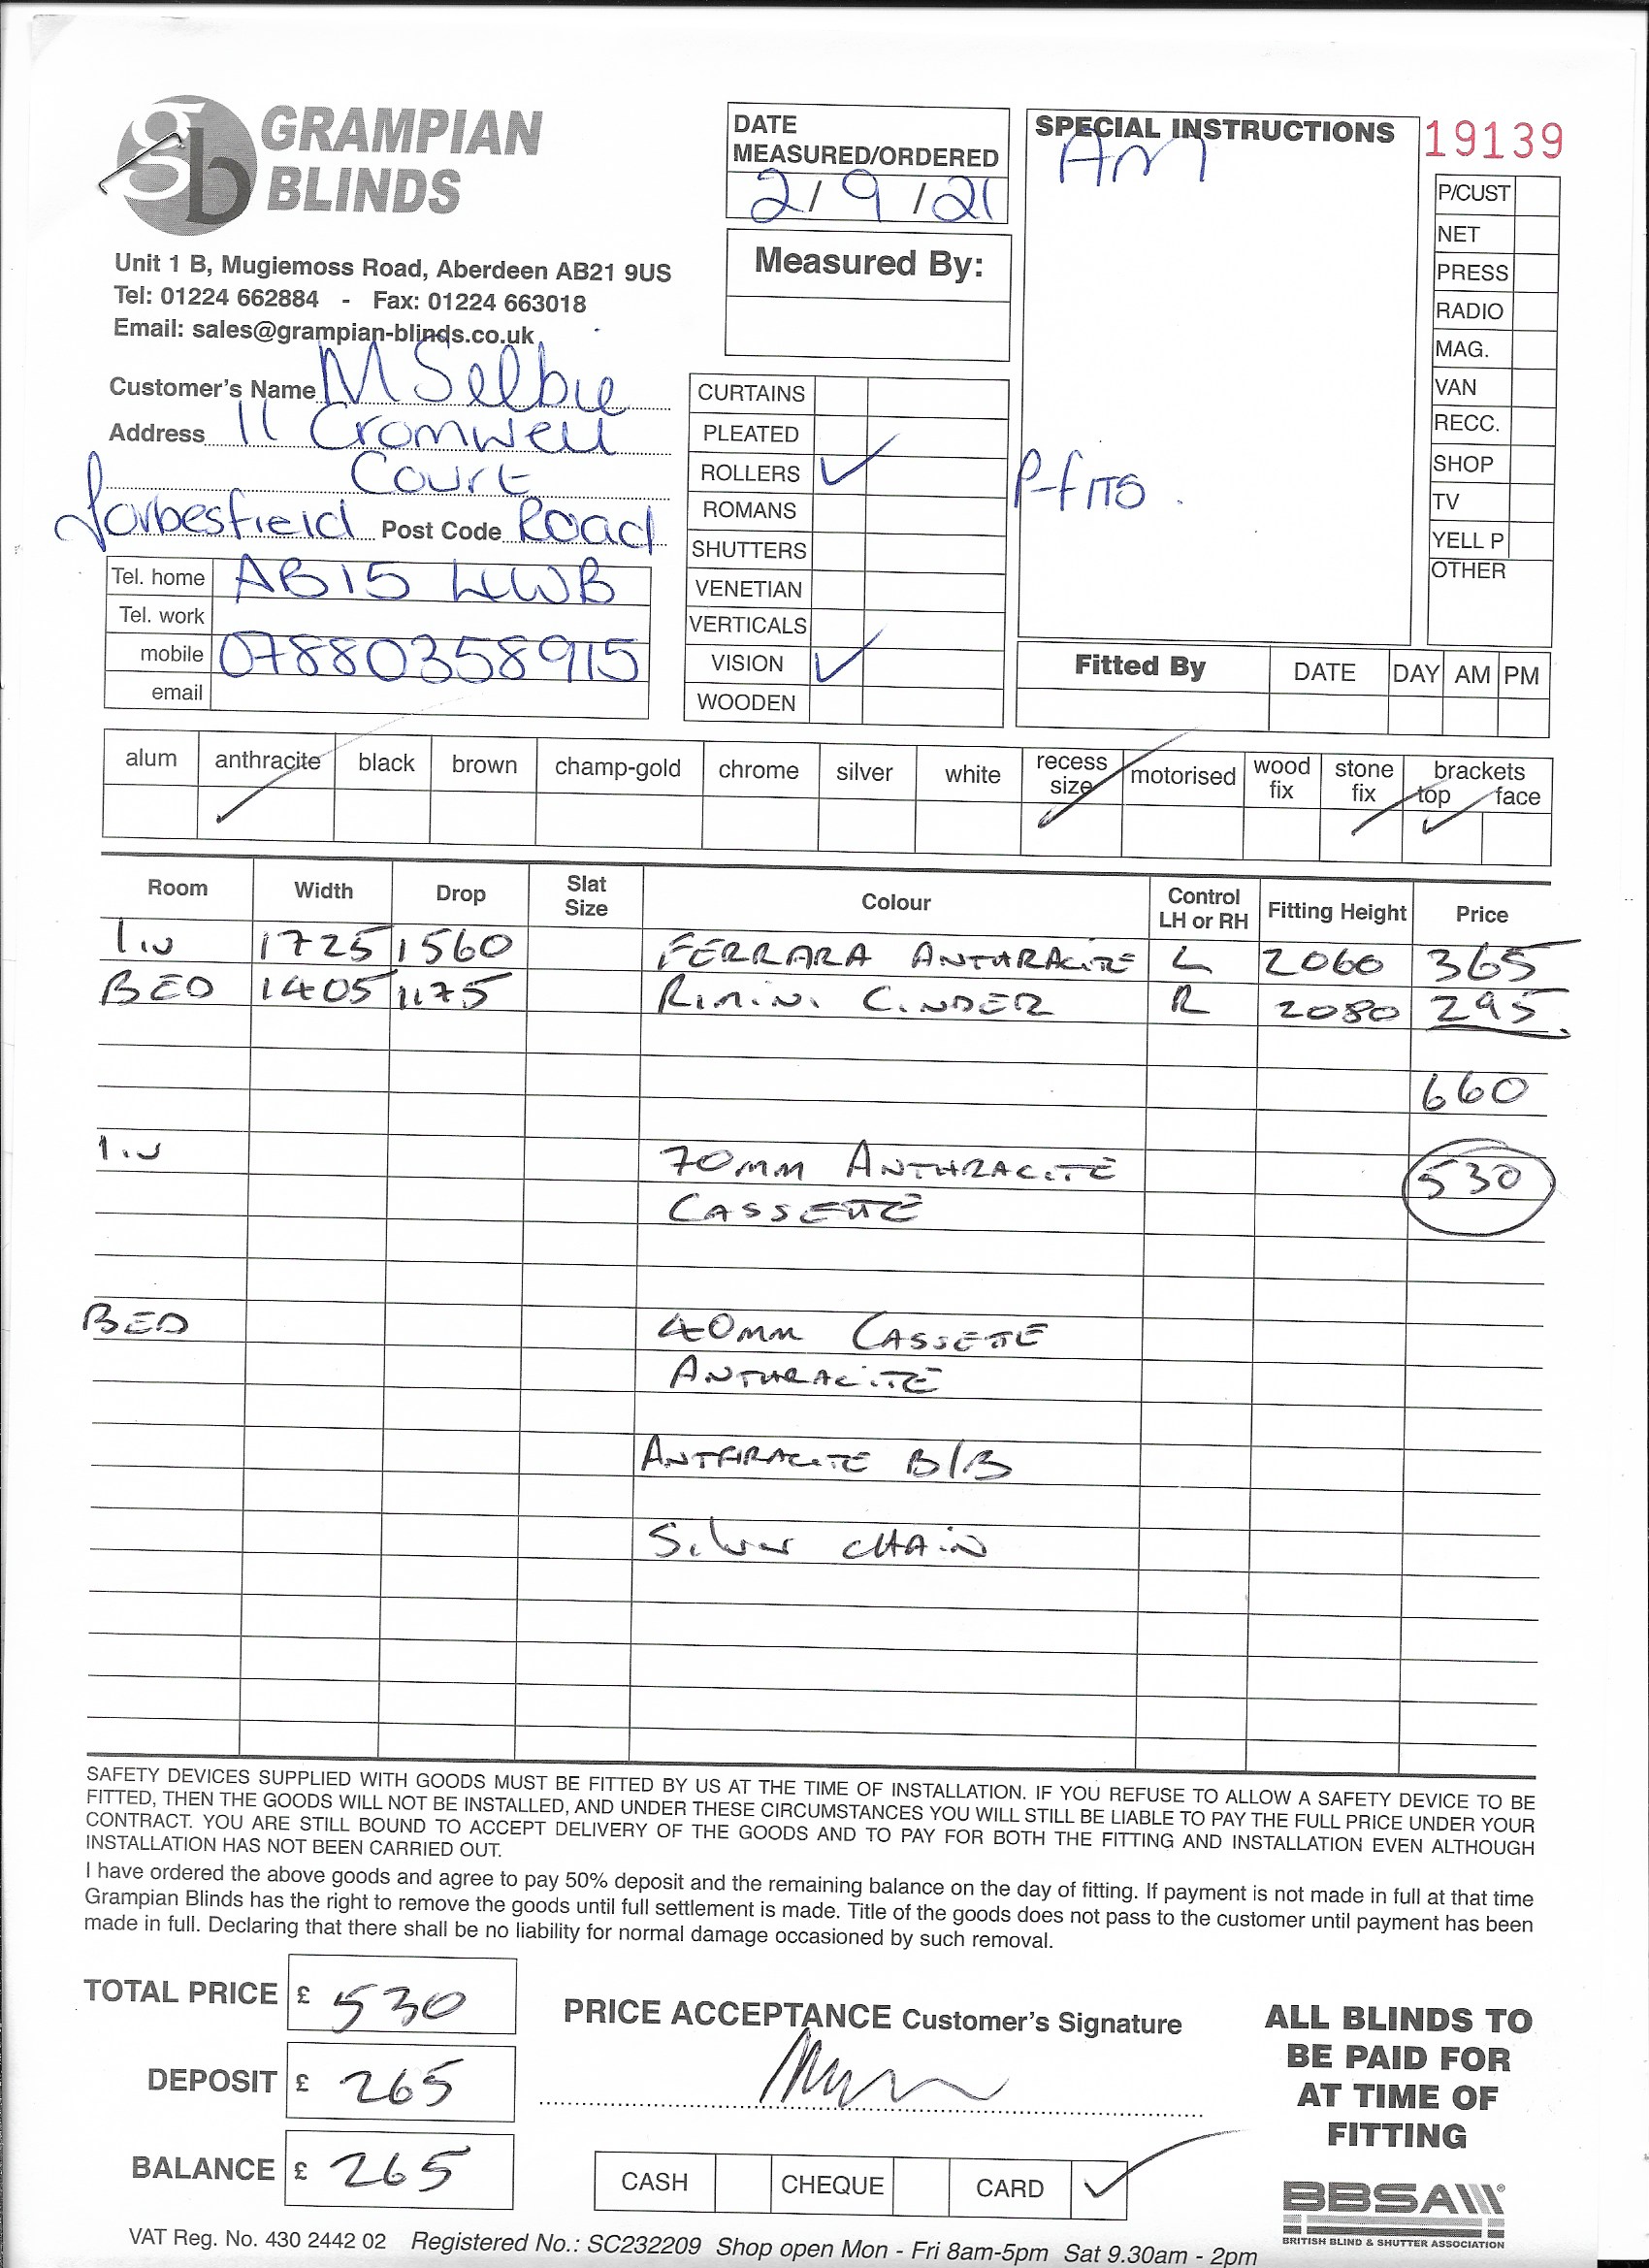 gb GRAMPIAN
BLINDS
Unit 1 B, Mugiemoss Road, Aberdeen AB21 9US
Tel: 01224 662884 - Fax: 01224 663018
Email: sales@grampian-blinds.co.uk
DATE
MEASURED/ORDERED
2/9/21
Measured By:
SPECIAL INSTRUCTIONS
AM
P-fITS.
19139
P/CUST
NET
PRESS
RADIO
MAG.
VAN
RECC.
SHOP
TV
YELL P
OTHER
Customer's Name M Selbie
Address 11 Cromwell
Court
Forbesfield Post Code Road
Tel. home AB15 4WB
Tel. work
mobile 07880358915
email
CURTAINS
PLEATED
ROLLERS ✓
ROMANS
SHUTTERS
VENETIAN
VERTICALS
VISION ✓
WOODEN
Fitted By DATE DAY AM PM
alum anthracite black brown champ-gold chrome silver white recess size motorised wood fix stone fix brackets top face
Room Width Drop Slat Size Colour Control LH or RH Fitting Height Price
Liv 1725 1560 FERRARA ANTHRACITE L 2060 365
BED 1405 1175 RIMINI CINDER R 2080 295
660
Liv 70MM ANTHRACITE 530
CASSETTE
BED 40MM CASSETTE
ANTHRACITE
ANTHRACITE B/B
Silver CHAIN
SAFETY DEVICES SUPPLIED WITH GOODS MUST BE FITTED BY US AT THE TIME OF INSTALLATION. IF YOU REFUSE TO ALLOW A SAFETY DEVICE TO BE
FITTED, THEN THE GOODS WILL NOT BE INSTALLED, AND UNDER THESE CIRCUMSTANCES YOU WILL STILL BE LIABLE TO PAY THE FULL PRICE UNDER YOUR
CONTRACT. YOU ARE STILL BOUND TO ACCEPT DELIVERY OF THE GOODS AND TO PAY FOR BOTH THE FITTING AND INSTALLATION EVEN ALTHOUGH
INSTALLATION HAS NOT BEEN CARRIED OUT.
I have ordered the above goods and agree to pay 50% deposit and the remaining balance on the day of fitting. If payment is not made in full at that time
Grampian Blinds has the right to remove the goods until full settlement is made. Title of the goods does not pass to the customer until payment has been
made in full. Declaring that there shall be no liability for normal damage occasioned by such removal.
TOTAL PRICE £ 530
DEPOSIT £ 265
BALANCE £ 265
PRICE ACCEPTANCE Customer's Signature
CASH CHEQUE CARD ✓
ALL BLINDS TO
BE PAID FOR
AT TIME OF
FITTING
BBSA
BRITISH BLIND & SHUTTER ASSOCIATION
VAT Reg. No. 430 2442 02 Registered No.: SC232209 Shop open Mon - Fri 8am-5pm Sat 9.30am - 2pm